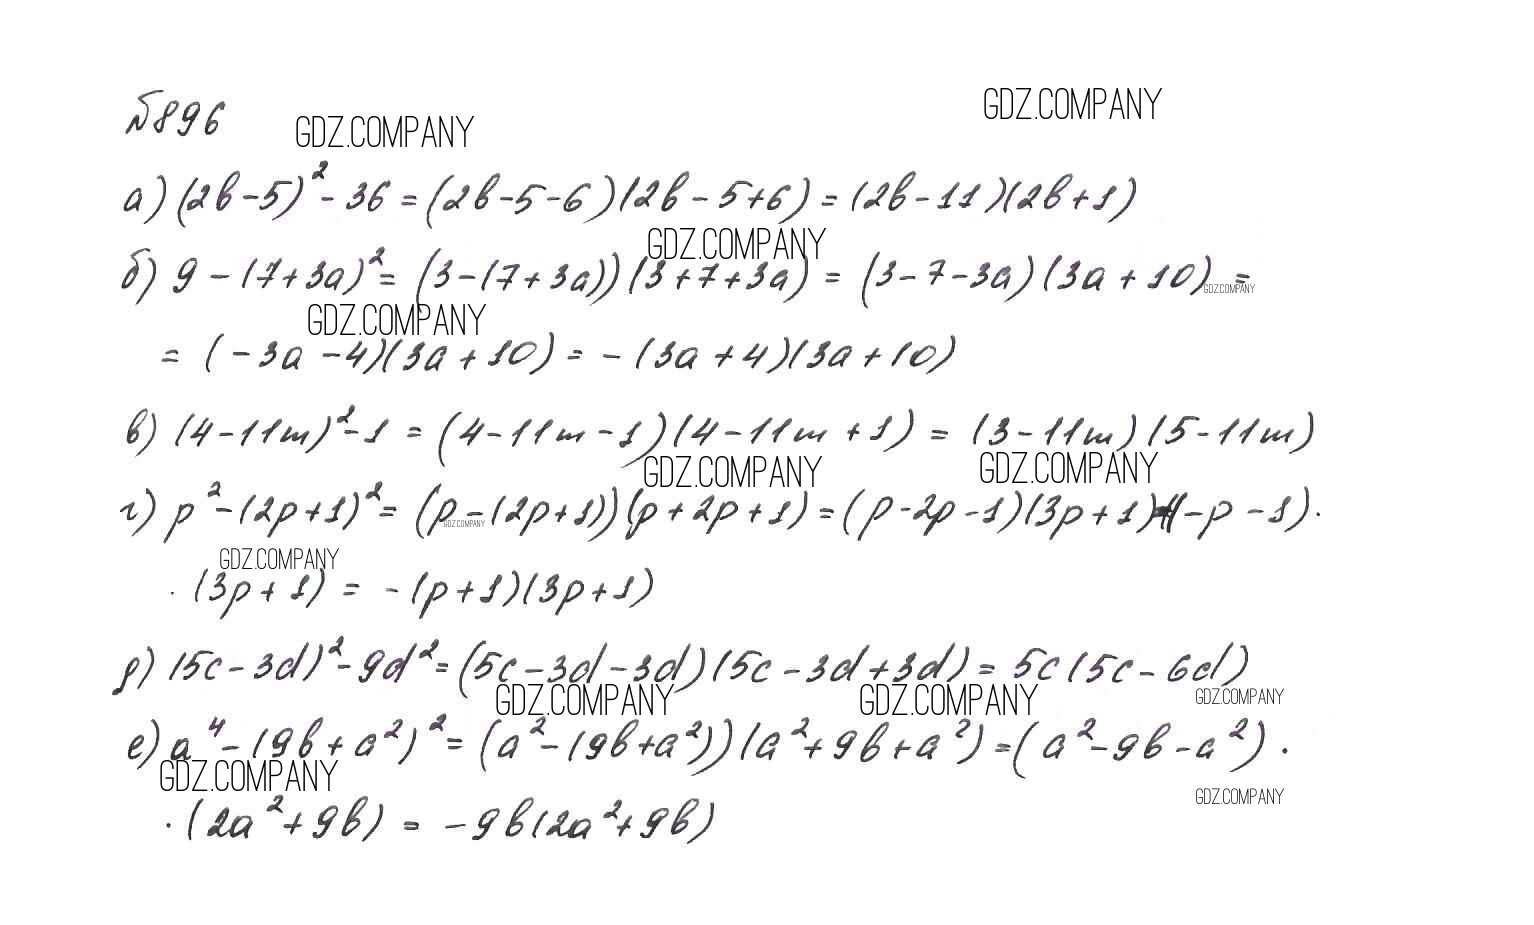 №896
GDZ.COMPANY GDZ.COMPANY
а) (2b-5)² - 36 = (2b-5-6)(2b-5+6) = (2b-11)(2b+1)
GDZ.COMPANY
б) 9 - (7+3a)² = (3-(7+3a))(3+7+3a) = (3-7-3a)(3a+10) =
GDZ.COMPANY
GDZ.COMPANY
= (-3a-4)(3a+10) = -(3a+4)(3a+10)
в) (4-11m)²-1 = (4-11m-1)(4-11m+1) = (3-11m)(5-11m)
GDZ.COMPANY GDZ.COMPANY
г) p²-(2p+1)² = (p-(2p+1))(p+2p+1) = (p-2p-1)(3p+1)=(-p-1)·
GDZ.COMPANY
GDZ.COMPANY
·(3p+1) = -(p+1)(3p+1)
д) (5c-3d)²-9d² = (5c-3d-3d)(5c-3d+3d) = 5c(5c-6d)
GDZ.COMPANY GDZ.COMPANY GDZ.COMPANY
е) a⁴-(9b+a²)² = (a²-(9b+a²))(a²+9b+a²) = (a²-9b-a²)·
GDZ.COMPANY
GDZ.COMPANY
·(2a²+9b) = -9b(2a²+9b)